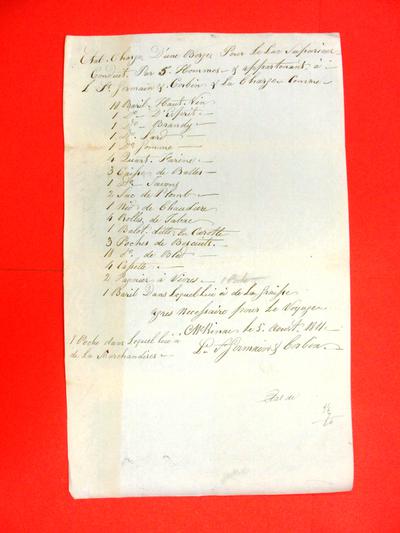 Etat. Charge D'une Barge Pour le Lac Superieur
Conduit. Par 5. Hommes. & appartenant à
L. St. Germain & Corbin & La Charge Comme
Baril Haut Vin
1 Do D'Esprit
1 Do Brandy
1 Do Lard
1 Do Gomme
4 Quart Farine
3 Caisse de Balles
1 Do Savons
2 Sac de Plomb
1 Nid de Chaudiere
4 Rolles de Tabac
1 Balot ditto en Carotte
3 Poches de Biscuits
Do de Bled
4 Capella
2 Pagnier à Vivres
1 Baril Dans Lequel luia de la Graisse
Necessaire pour Le Voyage
McKinac le 5 Aout
1 Poche dans Lequel luia
Ls. St Germain & Corbin
de La Marchandises